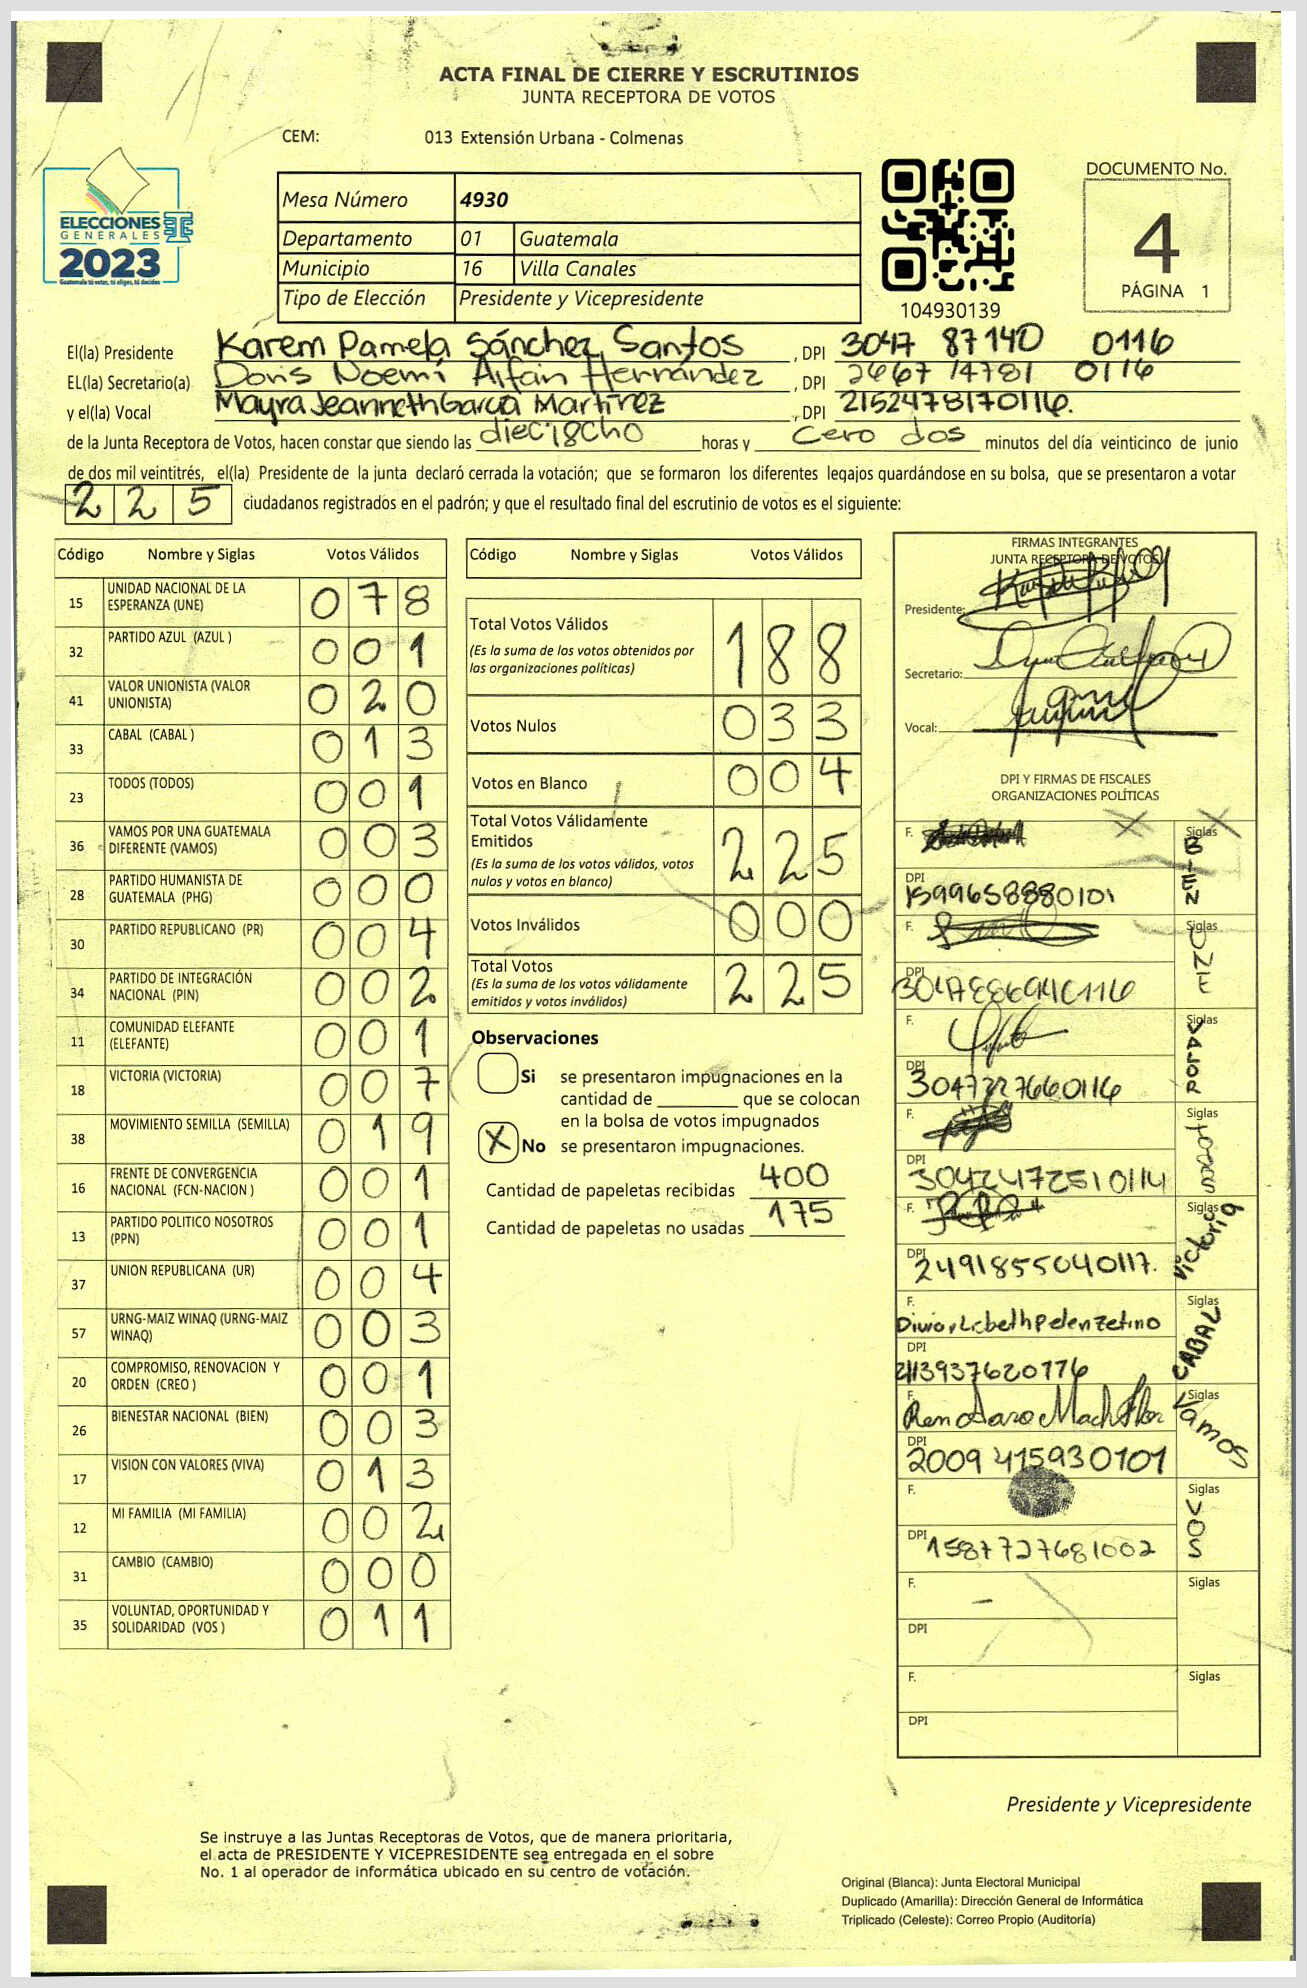 ACTA FINAL DE CIERRE Y ESCRUTINIOS
JUNTA RECEPTORA DE VOTOS
CEM: 013 Extensión Urbana - Colmenas
ELECCIONES
GENERALES
2023
Guatemala tú votas, tú eliges, tú decides
Mesa Número 4930
Departamento 01 Guatemala
Municipio 16 Villa Canales
Tipo de Elección Presidente y Vicepresidente
104930139
DOCUMENTO No.
4
PÁGINA 1
El(la) Presidente Karem Pamela Sánchez Santos , DPI 3047 87140 0116
EL(la) Secretario(a) Doris Noemí Alfán Hernández , DPI 2667 14781 0116
y el(la) Vocal Mayra Jeanneth García Martínez , DPI 2152478170116.
de la Junta Receptora de Votos, hacen constar que siendo las dieci8cho horas y cero dos minutos del día veinticinco de junio
de dos mil veintitrés, el(la) Presidente de la junta declaró cerrada la votación; que se formaron los diferentes legajos guardándose en su bolsa, que se presentaron a votar
225 ciudadanos registrados en el padrón; y que el resultado final del escrutinio de votos es el siguiente:
Código Nombre y Siglas Votos Válidos
15 UNIDAD NACIONAL DE LA ESPERANZA (UNE) 078
32 PARTIDO AZUL (AZUL ) 001
41 VALOR UNIONISTA (VALOR UNIONISTA) 020
33 CABAL (CABAL ) 013
23 TODOS (TODOS) 001
36 VAMOS POR UNA GUATEMALA DIFERENTE (VAMOS) 003
28 PARTIDO HUMANISTA DE GUATEMALA (PHG) 000
30 PARTIDO REPUBLICANO (PR) 004
34 PARTIDO DE INTEGRACIÓN NACIONAL (PIN) 002
11 COMUNIDAD ELEFANTE (ELEFANTE) 001
18 VICTORIA (VICTORIA) 007
38 MOVIMIENTO SEMILLA (SEMILLA) 019
16 FRENTE DE CONVERGENCIA NACIONAL (FCN-NACION ) 001
13 PARTIDO POLITICO NOSOTROS (PPN) 001
37 UNION REPUBLICANA (UR) 004
57 URNG-MAIZ WINAQ (URNG-MAIZ WINAQ) 003
20 COMPROMISO, RENOVACION Y ORDEN (CREO ) 001
26 BIENESTAR NACIONAL (BIEN) 003
17 VISION CON VALORES (VIVA) 013
12 MI FAMILIA (MI FAMILIA) 002
31 CAMBIO (CAMBIO) 000
35 VOLUNTAD, OPORTUNIDAD Y SOLIDARIDAD (VOS ) 011
Código Nombre y Siglas Votos Válidos
Total Votos Válidos 188
(Es la suma de los votos obtenidos por
las organizaciones políticas)
Votos Nulos 033
Votos en Blanco 004
Total Votos Válidamente
Emitidos 225
(Es la suma de los votos válidos, votos
nulos y votos en blanco)
Votos Inválidos 000
Total Votos 225
(Es la suma de los votos válidamente
emitidos y votos inválidos)
Observaciones
Si se presentaron impugnaciones en la
cantidad de ________ que se colocan
en la bolsa de votos impugnados
X No se presentaron impugnaciones.
Cantidad de papeletas recibidas 400
Cantidad de papeletas no usadas 175
FIRMAS INTEGRANTES
JUNTA RECEPTORA DE VOTOS
Presidente:
Secretario:
Vocal:
DPI Y FIRMAS DE FISCALES
ORGANIZACIONES POLÍTICAS
F. Siglas BIEN
DPI 1599658880101
F. Siglas UNE
DPI
F. Siglas VALOR
DPI 3047227660116
F. Siglas TODOS
DPI 3042472510114
F. Siglas Victoria
DPI 2491855040117.
F. Siglas CABAL
DPI
F. Siglas Vamos
DPI 2009415930101
F. Siglas VOS
DPI 1587727681002
F. Siglas
DPI
F. Siglas
DPI
Presidente y Vicepresidente
Se instruye a las Juntas Receptoras de Votos, que de manera prioritaria,
el acta de PRESIDENTE Y VICEPRESIDENTE sea entregada en el sobre
No. 1 al operador de informática ubicado en su centro de votación.
Original (Blanca): Junta Electoral Municipal
Duplicado (Amarilla): Dirección General de Informática
Triplicado (Celeste): Correo Propio (Auditoría)